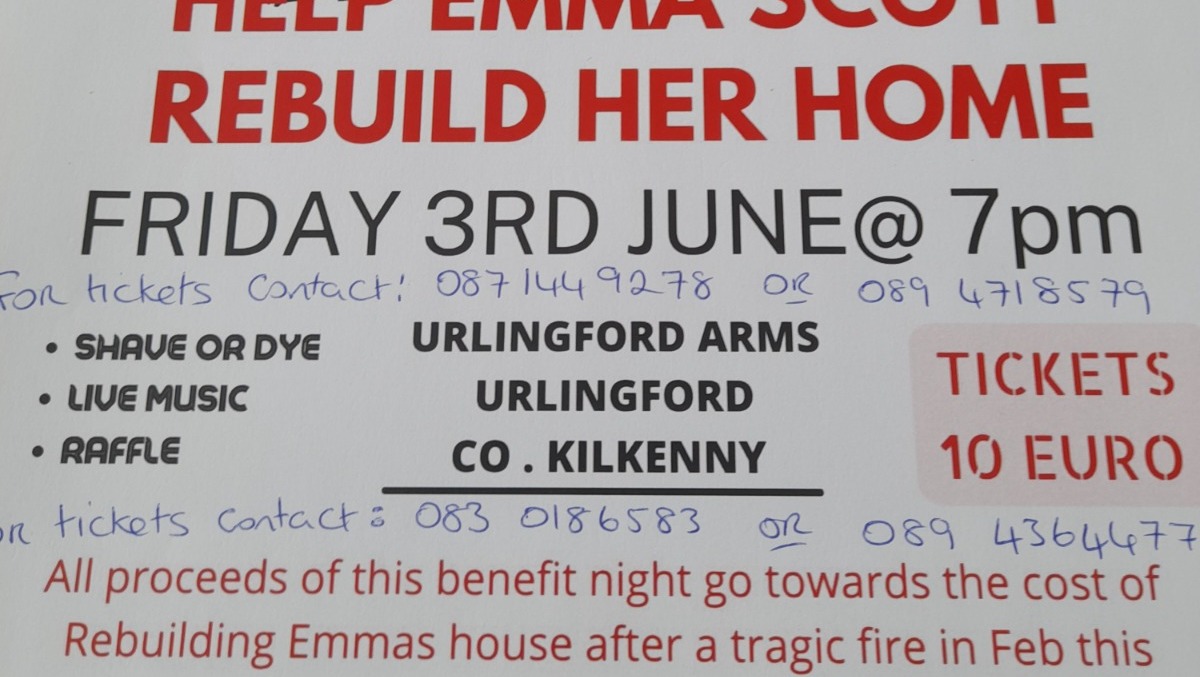 HELP EMMA SCOTT
REBUILD HER HOME
FRIDAY 3RD JUNE@ 7pm
For tickets contact: 087 1449278 OR 089 4718579
• SHAVE OR DYE
• LIVE MUSIC
• RAFFLE
URLINGFORD ARMS
URLINGFORD
CO . KILKENNY
TICKETS
10 EURO
or tickets contact: 083 0186583 OR 089 4364477
All proceeds of this benefit night go towards the cost of
Rebuilding Emmas house after a tragic fire in Feb this